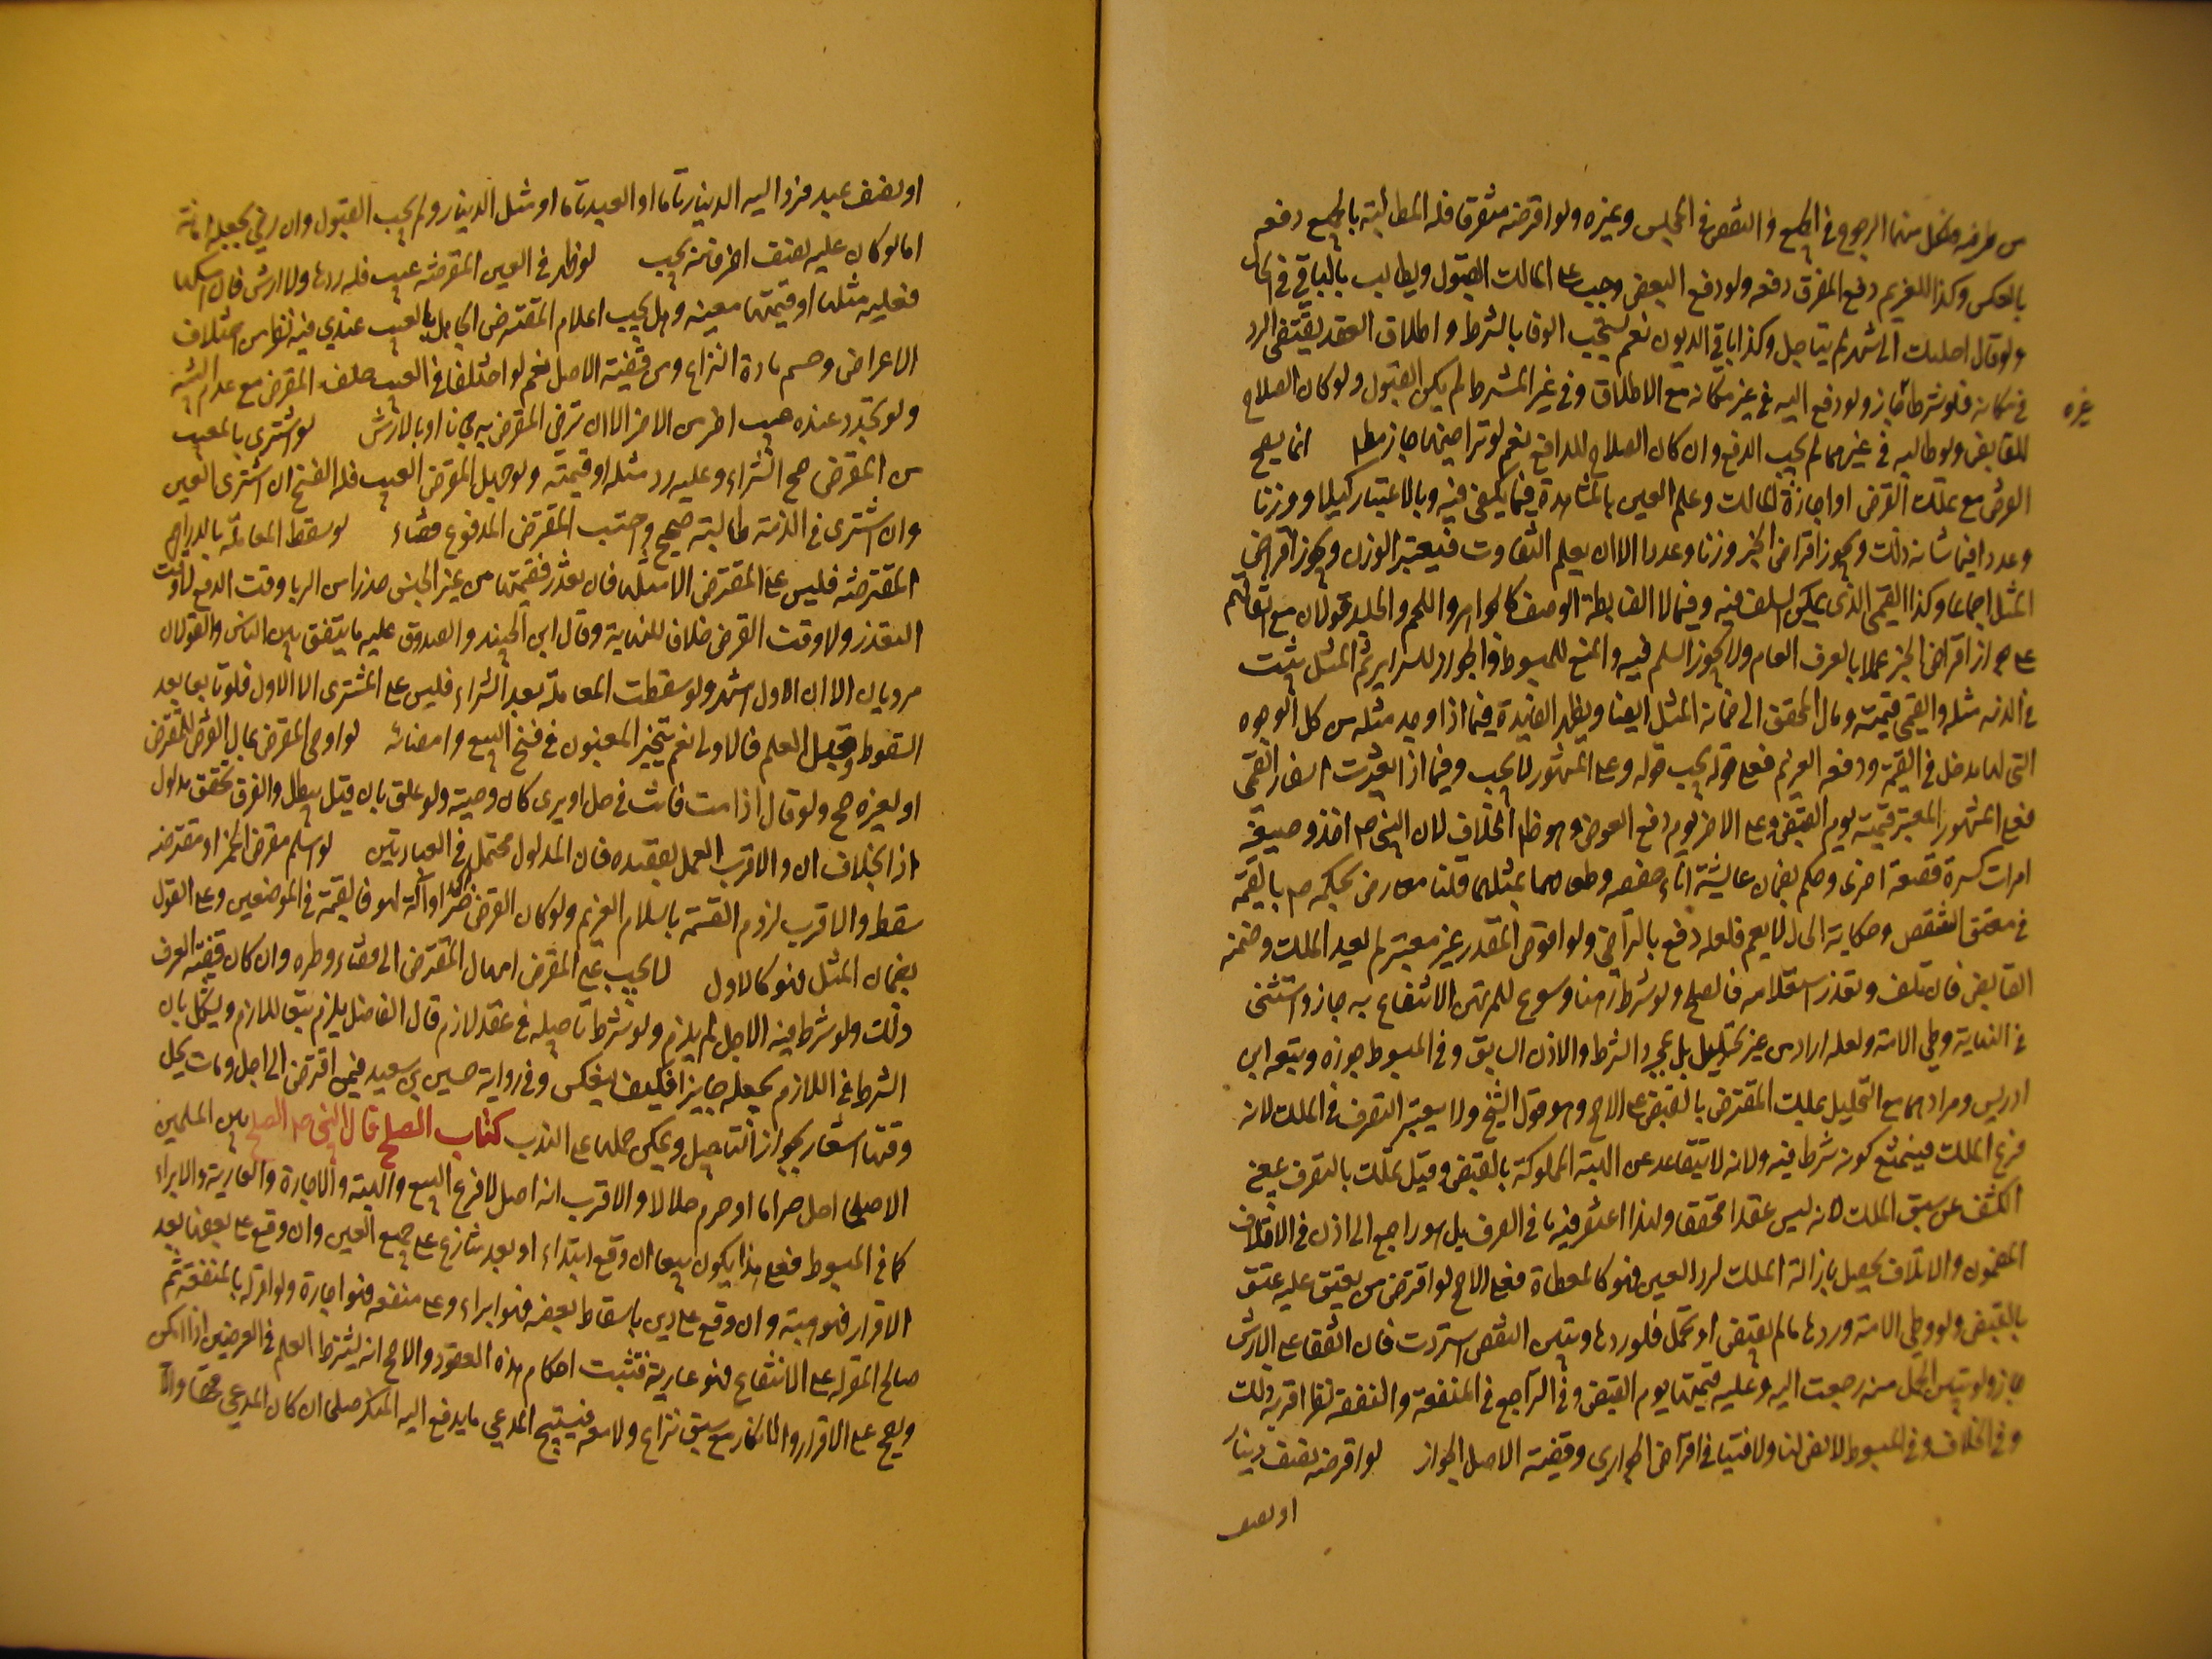 من طرفه ولكل منهما الرجوع في الجميع والنقص في المجلس وغيره ولو اقرضه متفرقا فله المطالبة بالجميع دفعه
بالعكس وكذا للغريم دفع المفرق دفعه ولو دفع البعض وجب على المالك القبول ويطالب بالباقي في الحال
ولو قال اجلتك الى شهر لم يتاجل وكذا باقي الديون نعم يستحب الوفا بالشرط واطلاق العقد يقتضي الرد
في مكانه فلو شرطا غيره جاز ولو دفع اليه في غير مكانه مع الاطلاق وفي غير المشترط لم يكن القبول ولو كان الصلاح
للقابض ولو طالبه في غيرهما لم يجب الدفع وان كان الصلاح للدافع نعم لو تراضيا جاز مطلقا انما يصح
القرض مع تملك المقرض او اجازة المالك وعلم العين بالمشاهدة فيما يكفي فيه وبالاعتبار كيلا ووزنا
وعددا فيما شانه ذلك ويجوز اقراض الخبز وزنا وعددا الا ان يعلم التفاوت فيعتبر الوزن ويجوز اقراض
المثلي اجماعا وكذا القيمي الذي يمكن السلف فيه وفيما لا الضابطة الوصف كالجواهر واللحم والجلد قولان مع اتفاقهم
على جواز اقراض الخبز عملا بالعرف العام ولا يجوز السلم فيه والمنع للمبسوط والجواز للسرائر ثم المثلي يثبت
في الذمة مثله والقيمي قيمته ومال المحقق الى ضمانه المثل ايضا ويظهر الفائدة فيما اذا وجد مثله من كل الوجوه
التي لها مدخل في القيمة ودفعه الغريم فعلى قوله يجب قبوله وعلى المشهور لا يجب وفيما اذا تغيرت اسعار القيمي
فعلى المشهور المعتبر قيمته يوم القبض وعلى الاخر يوم دفع العوض وهو ظاهر الخلاف لان النبي ص اخذ قصعة
امراة كسرت قصعة اخرى وحكم بضمان عايشة اناء حفصه وطعامها بمثلهما قلنا معارض بحكمه ص بالقيمة
في معتق الشقص وحكاية الحال لا يعم فلعله دفع بالتراضي ولو اقترض المقدر غير معتبر لم يفد الملك وضمنه
القابض فان تلف وتعذر استعلامه فالصلح ولو شرط رهنا وسوغ للمرتهن الانتفاع به جاز واستثنى
في النهاية وطي الامة ولعله اراد من غير تحليل بل بمجرد الشرط والاذن السابق وفي المبسوط جوزه وتبعه ابن
ادريس ومرادهما مع التحليل يملك المقترض بالقبض على الاصح وهو قول الشيخ ولا يعتبر التصرف في الملك لانه
فرع الملك فيمتنع كونه شرطا فيه ولانه لا يتقاعد عن الهبة المملوكة بالقبض وقيل تملك بالتصرف بمعنى
الكشف عن سبق الملك لانه ليس عقدا محققا ولهذا اغتفر فيه ما في الصرف بل هو راجع الى اذن في الاتلاف
المضمون والاتلاف يحصل بازالة الملك لرد العين فهو كالمعطاة فعلى الاصح لو اقترض من يعتق عليه عتق
بالقبض ولو وطي الامة وردها ما لم تقبض او تحمل فلو ردها وتبين النقص استردت فان اتفقا على الارش
جاز ولو تبين الحمل منه رجعت اليه وعليه قيمتها يوم القبض وفي التراجع في المنفعة والنفقة نظر اقربه ذلك
وفي الخلاف وفي المبسوط لا نص لنا ولا فتيا في اقراض الجواري وقضية الاصل الجواز لو اقرضه نصف دينار
او نصف
غيره
او نصف عبد فرد اليه الدينار تاما او العبد تاما او مثل الدينار ولم يجب القبول وان رضي بجعله امانة
اما لو كان عليه نصف اخر فانه يجب لو ظهر في العين المقرضة عيب فله ردها ولا ارش فان امسكها
فعليه مثلها او قيمتها معيبة وهل يجب اعلام المقترض الجاهل بالعيب عندي فيه نظر من اختلاف
الاغراض وحسم مادة النزاع ومن قضية الاصل نعم لو اختلفا في العيب حلف المقرض مع عدم البينة
ولو تجدد عنده عيب اخر من الاخر الا ان ترضى المقرض به مجانا او بالارش لو اشترى بالمعيب
من المقرض صح الشراء وعليه رد مثله او قيمته ولو جهل المقرض العيب فله الفسخ ان اشترى العين
وان اشترى في الذمة طالبه صحيح واحتسب المقرض المدفوع قضاء لو سقط المعاملة بالدراهم
المقترضة فليس على المقترض الا مثلها فان تعذر فقيمتها من غير الجنس حذرا من الربا وقت الدفع لا وقت
التعذر ولا وقت القرض خلافا للنهاية وقال ابن الجنيد والصدوق عليه ما يتفق بين الناس والقولان
مرويان الا ان الاول اشهر ولو سقطت المعاملة بعد الشراء فليس على المشتري الا الاول فلو تبايعا بعد
السقوط وقبل العلم فالاول نعم يتخير المغبون في فسخ البيع وامضائه لو اوصى المقرض بمال القرض للمقترض
او لغيره صح ولو قال اذا مت فانت في حل او بري كان وصية ولو علق بان قيل يبطل والفرق تحقق مدلول
اذا بخلاف ان والاقرب العمل بقصده فان المدلول محتمل في العبارتين لو اسلم مقرض الخمر او مقترضه
سقط والاقرب لزوم القيمة باسلام الغريم ولو كان القرض خنزيرا او آلة لهو فالقيمة في الموضعين وعلى القول
بضمان المثل فهو كالاول لا يجب على المقرض امهال المقترض الى قضاء وطره وان كان قضية العرف
ذلك ولو شرط فيه الاجل لم يلزم ولو شرط تاجيله في عقد لازم قال الفاضل يلزم تبعا للازم ويشكل بان
الشرط في اللازم يجعله جايزا فكيف ينعكس وفي رواية حسين بن سعيد فيمن اقترض الى اجل ومات يحل
وفيها اشعار بجواز التاجيل ويمكن حملها على الندب كتاب الصلح قال النبي ص الصلح بين المسلمين
الا صلحا احل حراما او حرم حلالا والاقرب انه اصل لا فرع البيع والهبة والاجارة والعارية والابراء
كما في المبسوط فعلى هذا يكون بيعا ان وقع ابتداء او بعد تنازع على جميع العين وان وقع على بعضها بعد
الاقرار فهو هبة وان وقع على دين باسقاط بعضه فهو ابراء وعلى منفعه فهو اجارة ولو اقر له بالمنفعة ثم
صالح المقر له على الانتفاع فهو عارية فتثبت احكام هذه العقود والاصح انه يشترط العلم في العوضين اذا امكن
ويصح على الاقرار والانكار مع سبق نزاع ولا معه فيستبيح المدعي ما يدفع اليه المنكر صلحا ان كان المدعي محقا والا